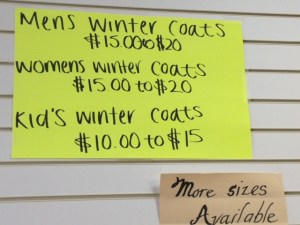 Mens Winter Coats
$15.00to$20
Womens Winter Coats
$15.00 to $20
Kid's Winter Coats
$10.00 to $15
More sizes
Available